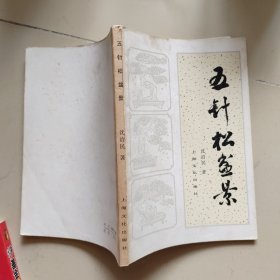 五针松盆景
沈荫民 著
上海文化出版社
五针松盆景
沈荫民 著
上海文化出版社